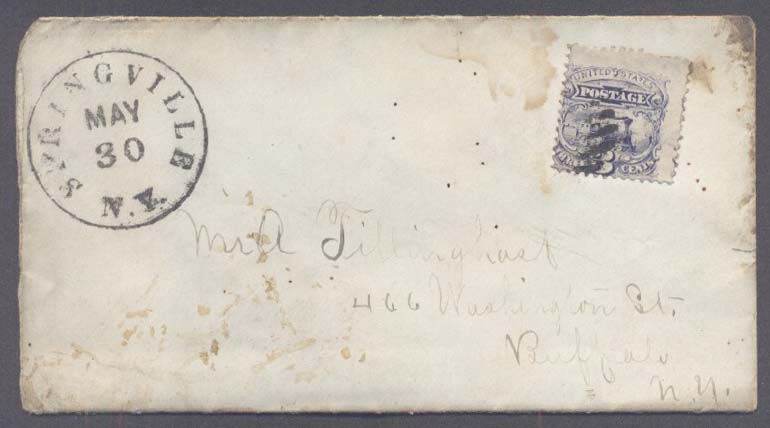 SPRINGVILLE
MAY
30
N.Y.
UNITED STATES
POSTAGE
3 CENTS
Mr A Tillinghast
466 Washington St.
Buffalo
N.Y.